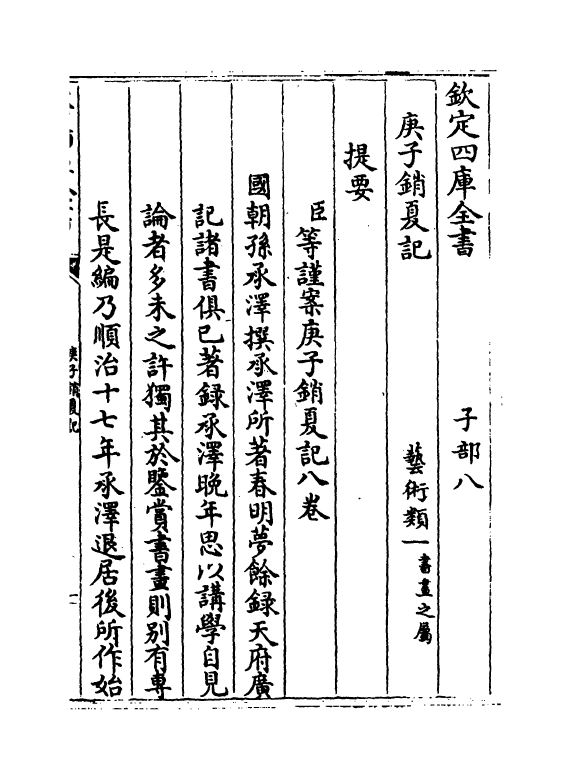 欽定四庫全書　子部八
庚子銷夏記　藝術類一書畫之屬
提要
臣等謹案庚子銷夏記八卷
國朝孫承澤撰承澤所著春明夢餘錄天府廣
記諸書俱已著錄承澤晚年思以講學自見
論者多未之許獨其於鑒賞書畫則別有專
長是編乃順治十七年承澤退居後所作始
庚子銷夏記